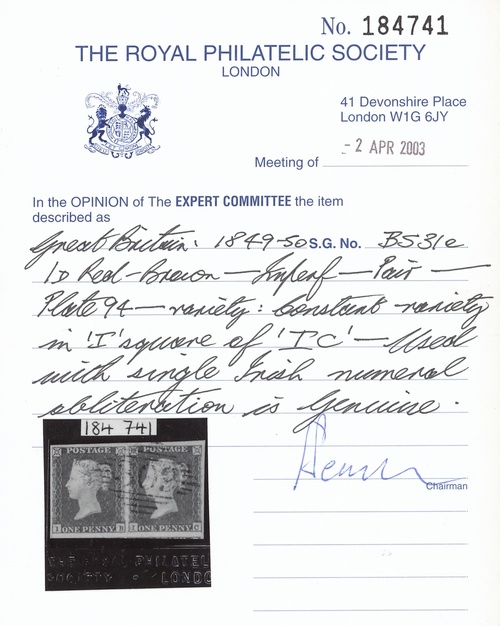 No. 184741
THE ROYAL PHILATELIC SOCIETY
LONDON
41 Devonshire Place
London W1G 6JY
Meeting of - 2 APR 2003
In the OPINION of The EXPERT COMMITTEE the item
described as
Great Britain: 1849-50 S.G. No. BS31e
1D Red-Brown — Imperf — Pair —
Plate 94 — variety: Constant variety
in 'I' square of 'IC' — Used
with single Irish numeral
obliteration is Genuine.
Chairman
184 741
POSTAGE POSTAGE
I ONE PENNY B I ONE PENNY C
THE ROYAL PHILATEL
SOCIETY LONDO